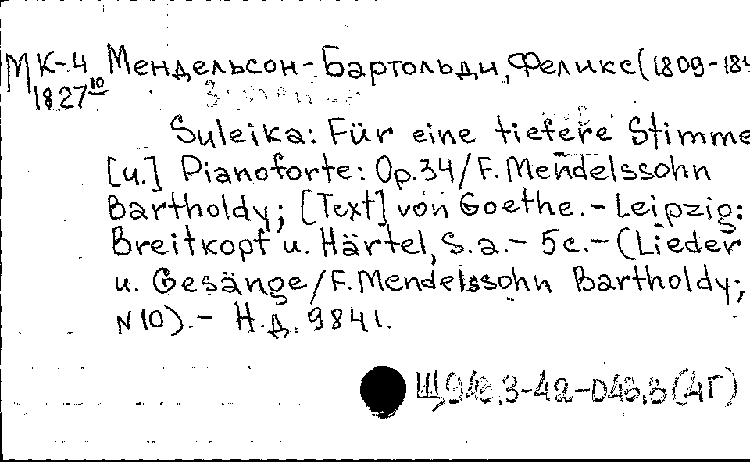 МК-4 Мендельсон-Бартольди, Феликс (1809-184
1827 10
Suleika: Für eine tiefere Stimme
[u.] Pianoforte: Op.34/F. Mendelssohn
Bartholdy; [Text] von Goethe.- Leipzig:
Breitkopf u. Härtel, S.a.- 5с.- (Lieder
u. Gesänge/F. Mendelssohn Bartholdy;
N10).- Н.д. 9841.
Щ948.3-42-043.3(4Г)